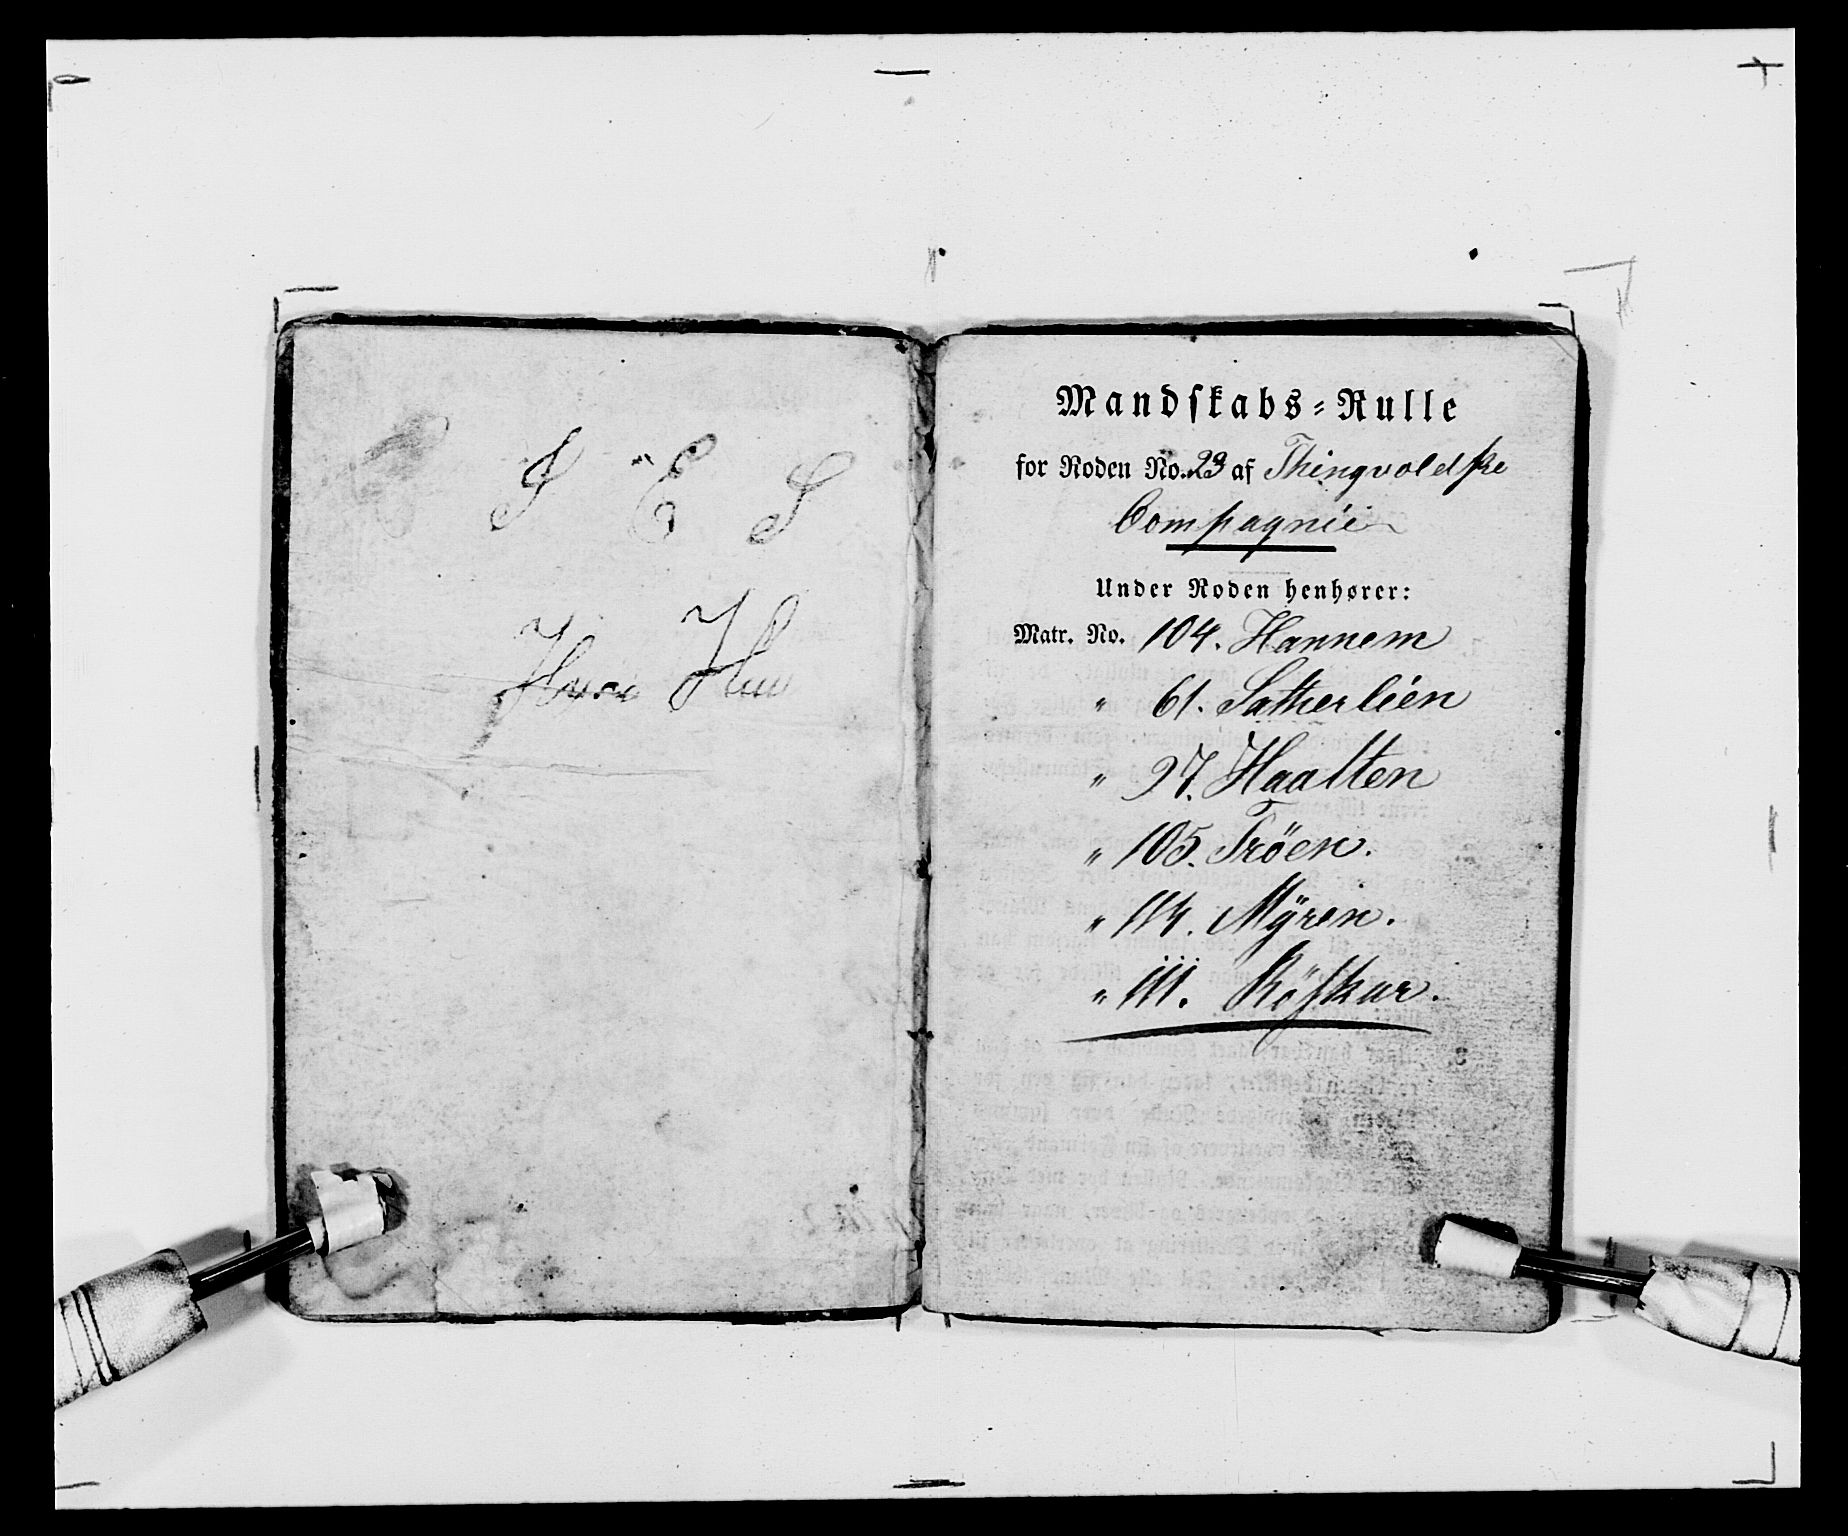 S E S
Mandskabs-Rulle
for Roden No. 23 af Thingvoldske
Compagnie
Under Roden henhører:
Matr. No. 104. Hannem
" 61. Sætherlien
" 97. Haalten
" 105. Tröen.
" 114. Mÿren.
" 111. Röskar.